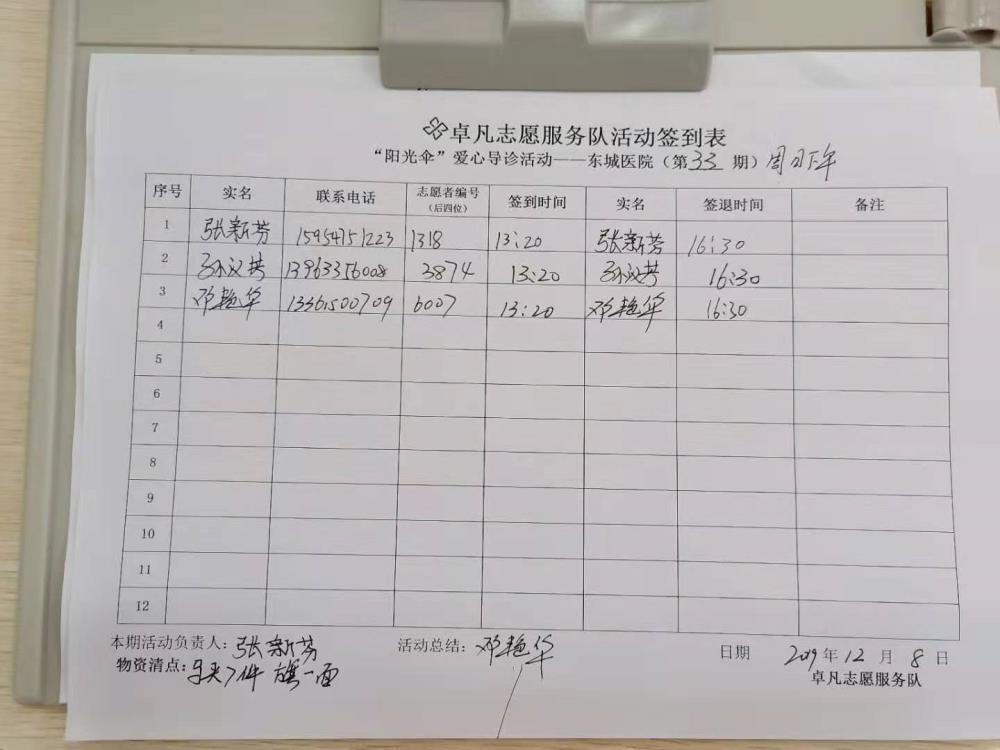 卓凡志愿服务队活动签到表
“阳光伞”爱心导诊活动——东城医院（第33期）周日下午
序号 实名 联系电话 志愿者编号（后四位） 签到时间 实名 签退时间 备注
1 张新芳 15954751223 1318 13:20 张新芳 16:30
2 13963356008 3874 13:20 16:30
3 邓艳华 13361500709 6007 13:20 邓艳华 16:30
4
5
6
7
8
9
10
11
12
本期活动负责人：张新芳 活动总结：邓艳华 日期 2019年12月8日
物资清点：7件 旗一面 卓凡志愿服务队